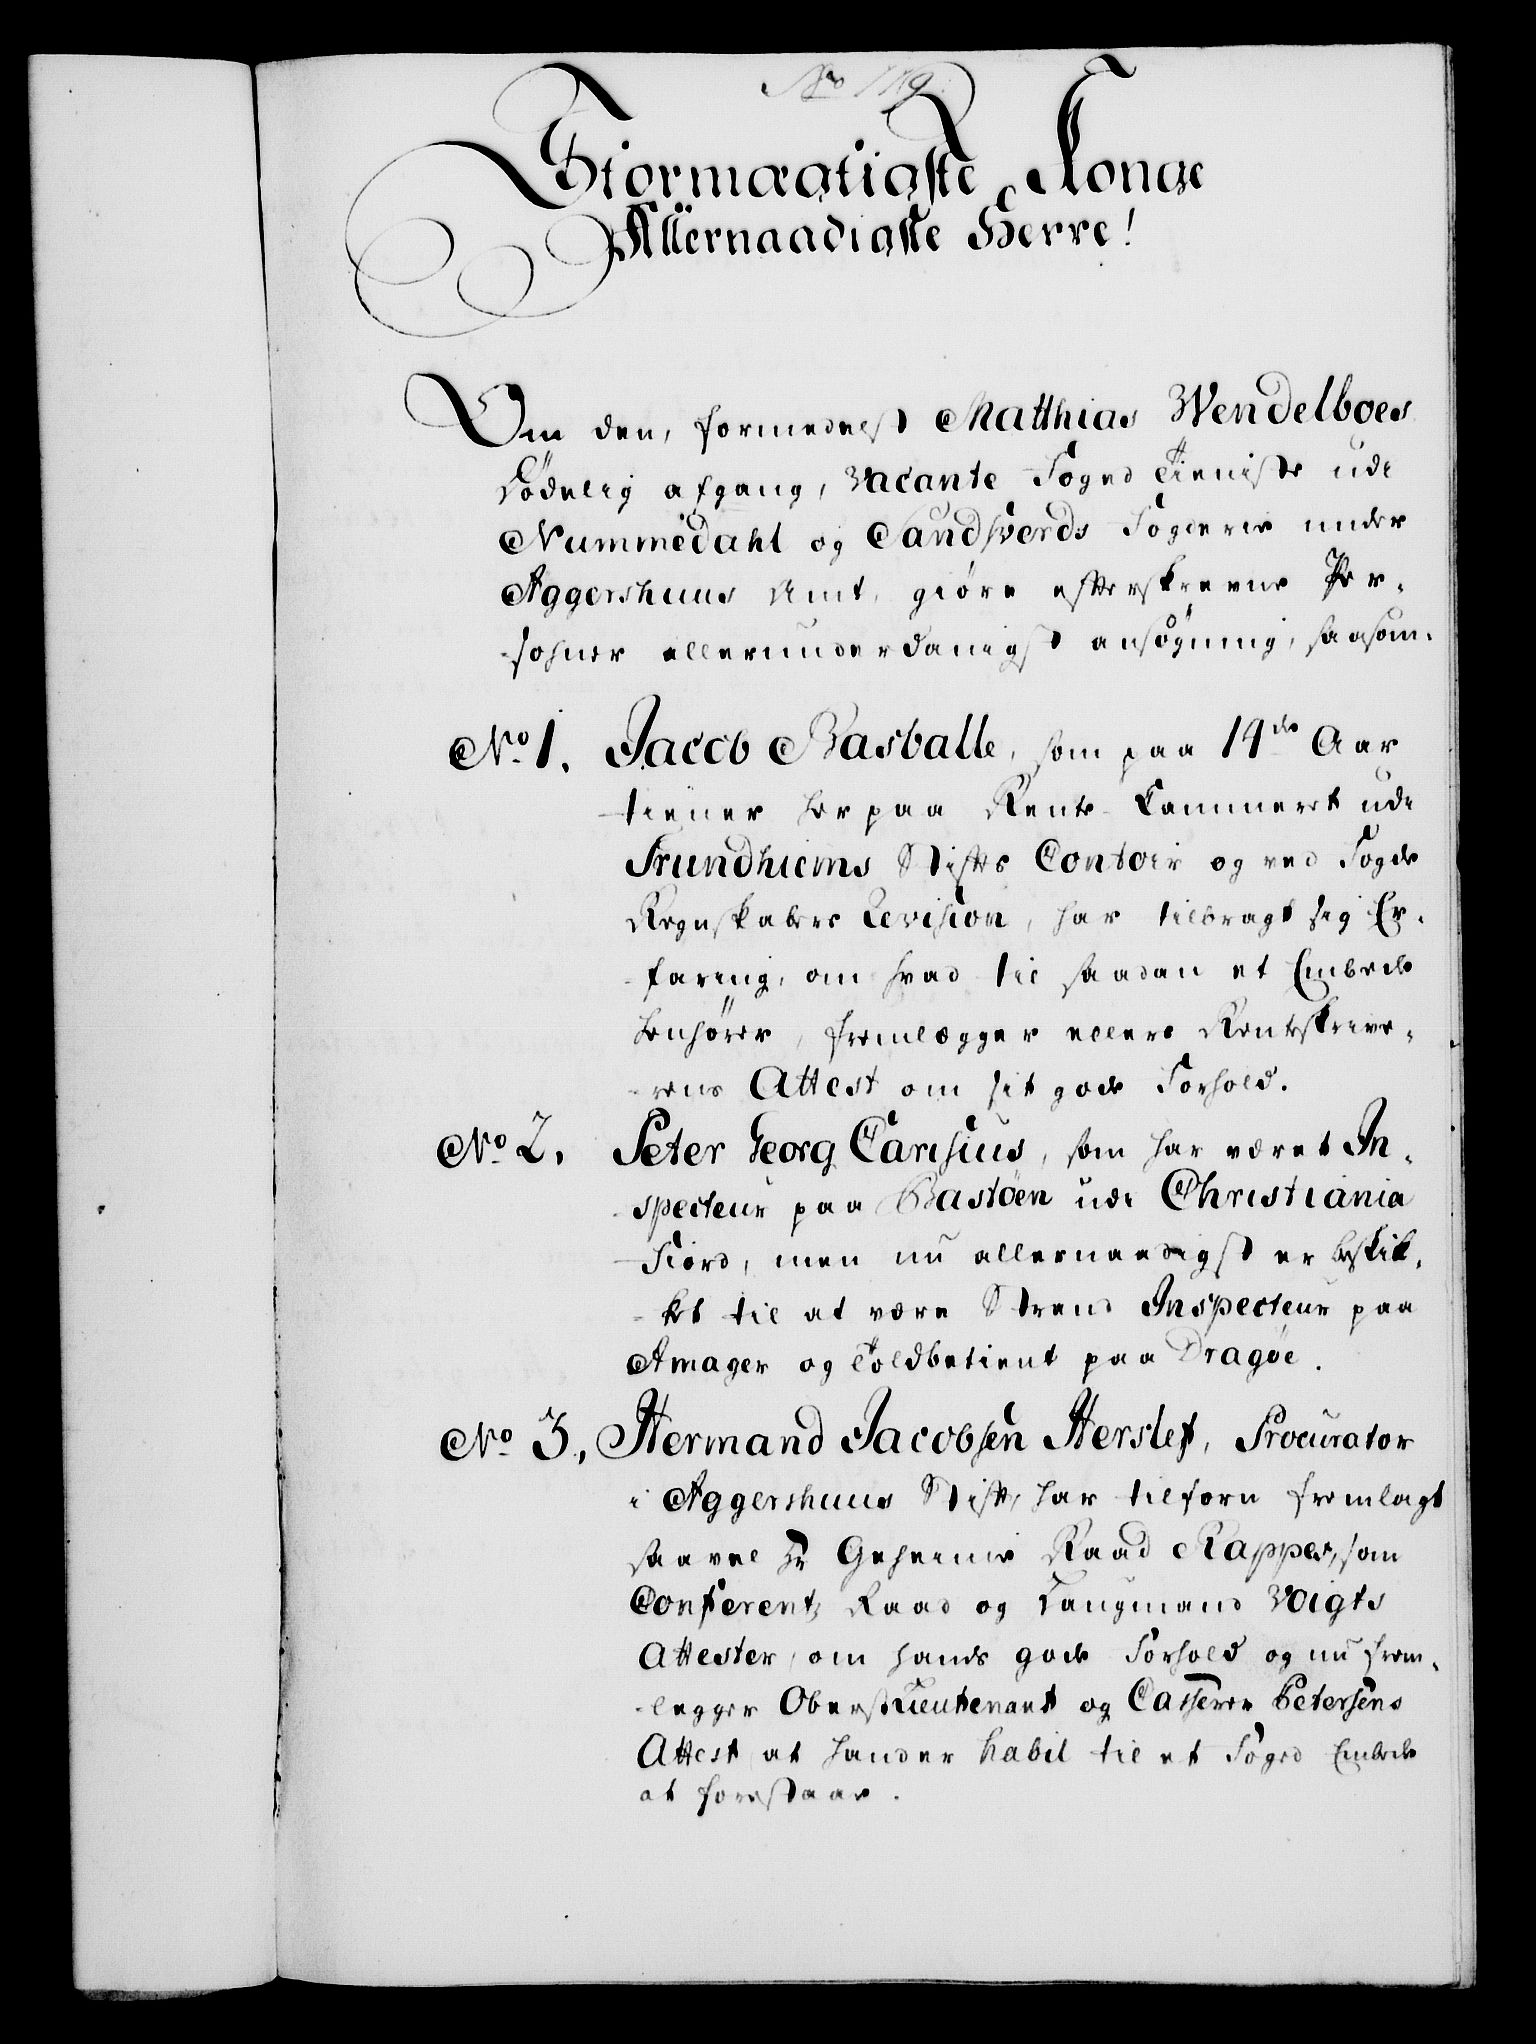 No 119.
Stormægtigste Konge
Allernaadigste Herre!
Om den, formedelst Matthias Wendelboes
dödelig afgang, vacante Foged Tieniste udi
Nummedahl og Sandsverds Fogderie under
Aggershuus Amt, giöre efterskrevne Per-
sohner allerunderdanigst ansögning, saasom.
No 1. Jacob Basballe, som paa 14de Aar
tiener her paa Rente-Cammeret udi
Trundhiems Stifts Contoir og ved Fogde
Regnskabers Revision, har tilbragt sig Er-
faring, om hvad til saadan et Embede
henhörer, fremlægger ellers Renteskrive-
rens Attest om sit gode Forhold.
No 2. Peter Georg Carisius, som har været In-
specteur paa Bastöen udi Christiania
Fiord, men nu allernaadigst er beskik-
ket til at være Strand Inspecteur paa
Amager og Toldbetient paa Dragöe.
No 3. Hermand Jacobsen Herslef, Procurator
i Aggershuus Stift, har tilforn fremlagt
saavel Hr Geheime Raad Rappes, som
Conferentz Raad og Laugmand Voigts
Attester, om hands gode Forhold og nu frem-
legger Oberstlieutenant og Casserer Petersens
Attest, at hand er habil til et Foged Embede
at forestaae.